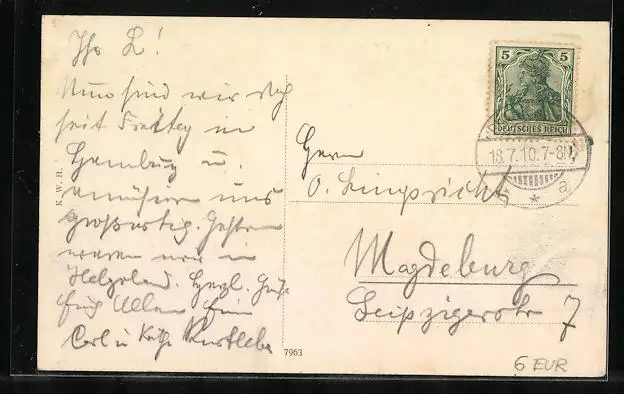 Ihr L!
Nun sind wir
seit Freitag in
Hamburg u.
amüsiren uns
großartig. Gestern
waren wir in
Helgoland. Herzl. Grüße
Euch Allen
Carl u Käthe
K. W. H.
7963
5 5
DEUTSCHES REICH
18.7.10.7-8N.
* a
Herrn
O. Lingpricht
Magdeburg
Leipzigerstr 7
6 EUR